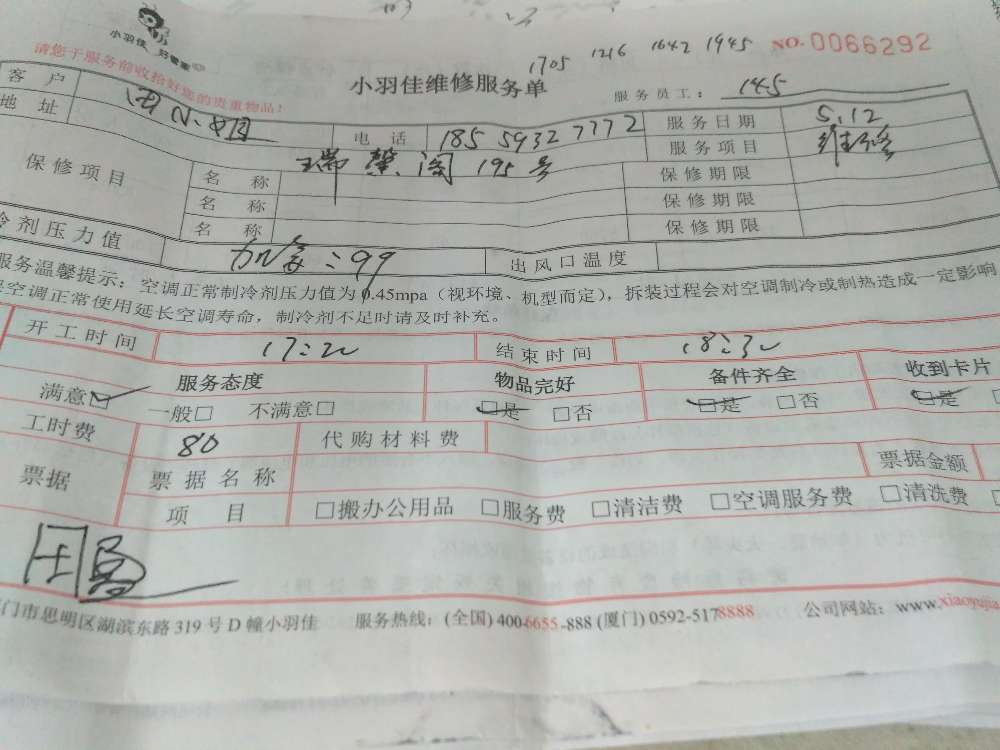 小羽佳 好管家
请您于服务前收拾好您的贵重物品！
1705 1216 1642 1945
NO. 0066292
小羽佳维修服务单
服务员工： 145
客 户
电 话 185 5932 7772
服务日期 5.12
地 址
瑞馨阁 195号
服务项目 维修
保修项目
名 称
保修期限
名 称
保修期限
名 称
保修期限
冷剂压力值
加氟：99
出风口温度
服务温馨提示：空调正常制冷剂压力值为 0.45mpa（视环境、机型而定），拆装过程会对空调制冷或制热造成一定影响
空调正常使用延长空调寿命，制冷剂不足时请及时补充。
开工时间 17:20
结束时间 18:30
服务态度
物品完好
备件齐全
收到卡片
满意☑ 一般□ 不满意□
☑是 □否
☑是 □否
☑是
工时费 80
代购材料费
票据
票据名称
票据金额
项 目
□搬办公用品 □服务费 □清洁费 □空调服务费 □清洗费
门市思明区湖滨东路 319 号 D 幢小羽佳 服务热线：(全国) 400-6655-888 (厦门) 0592-5178888 公司网站：www.xiaoyujia